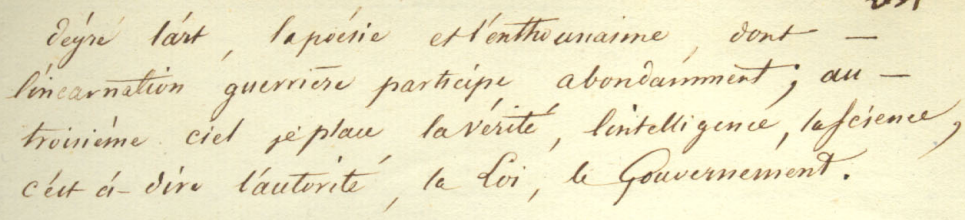 dégré l'art, la poésie et l'enthousiasme, dont —
l'incarnation guerrière participe abondamment; au —
troisième ciel je place la vérité, l'intelligence, la science,
c'est-à-dire l'autorité, la Loi, le Gouvernement.